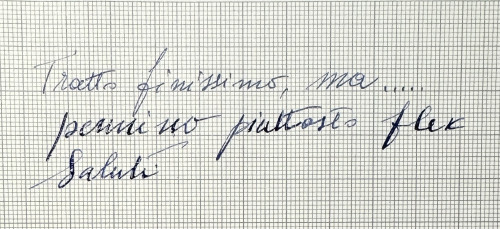 Tratto finissimo, ma.....
pennino piuttosto flex
Saluti